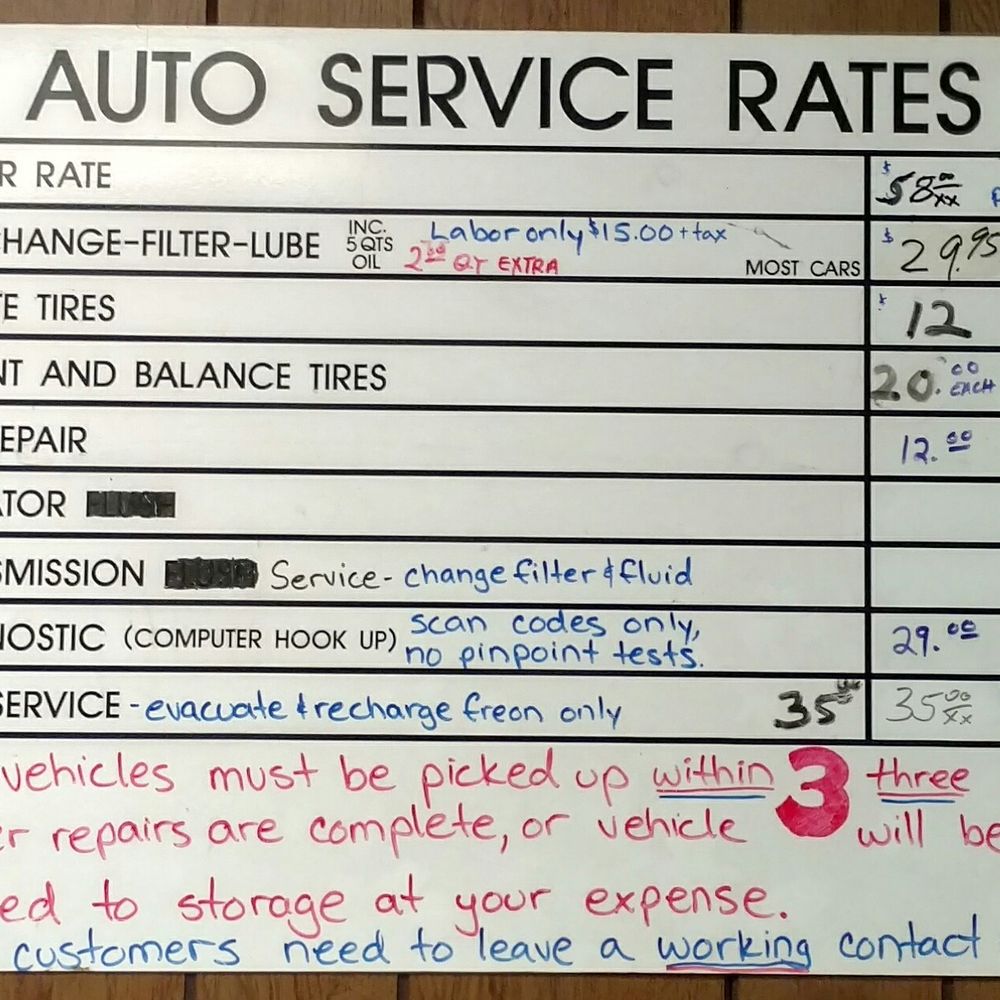 AUTO SERVICE RATES
R RATE $58.00/xx
HANGE-FILTER-LUBE INC. 5 QTS OIL Labor only $15.00 + tax 2.00 QT EXTRA MOST CARS $29.95
E TIRES $12
NT AND BALANCE TIRES 20.00 EACH
EPAIR 12.00
ATOR
SMISSION Service - change filter & fluid
NOSTIC (COMPUTER HOOK UP) scan codes only, no pinpoint tests. 29.00
SERVICE - evacuate & recharge freon only 35 35.00/xx
vehicles must be picked up within 3 three
er repairs are complete, or vehicle will be
ed to storage at your expense.
customers need to leave a working contact